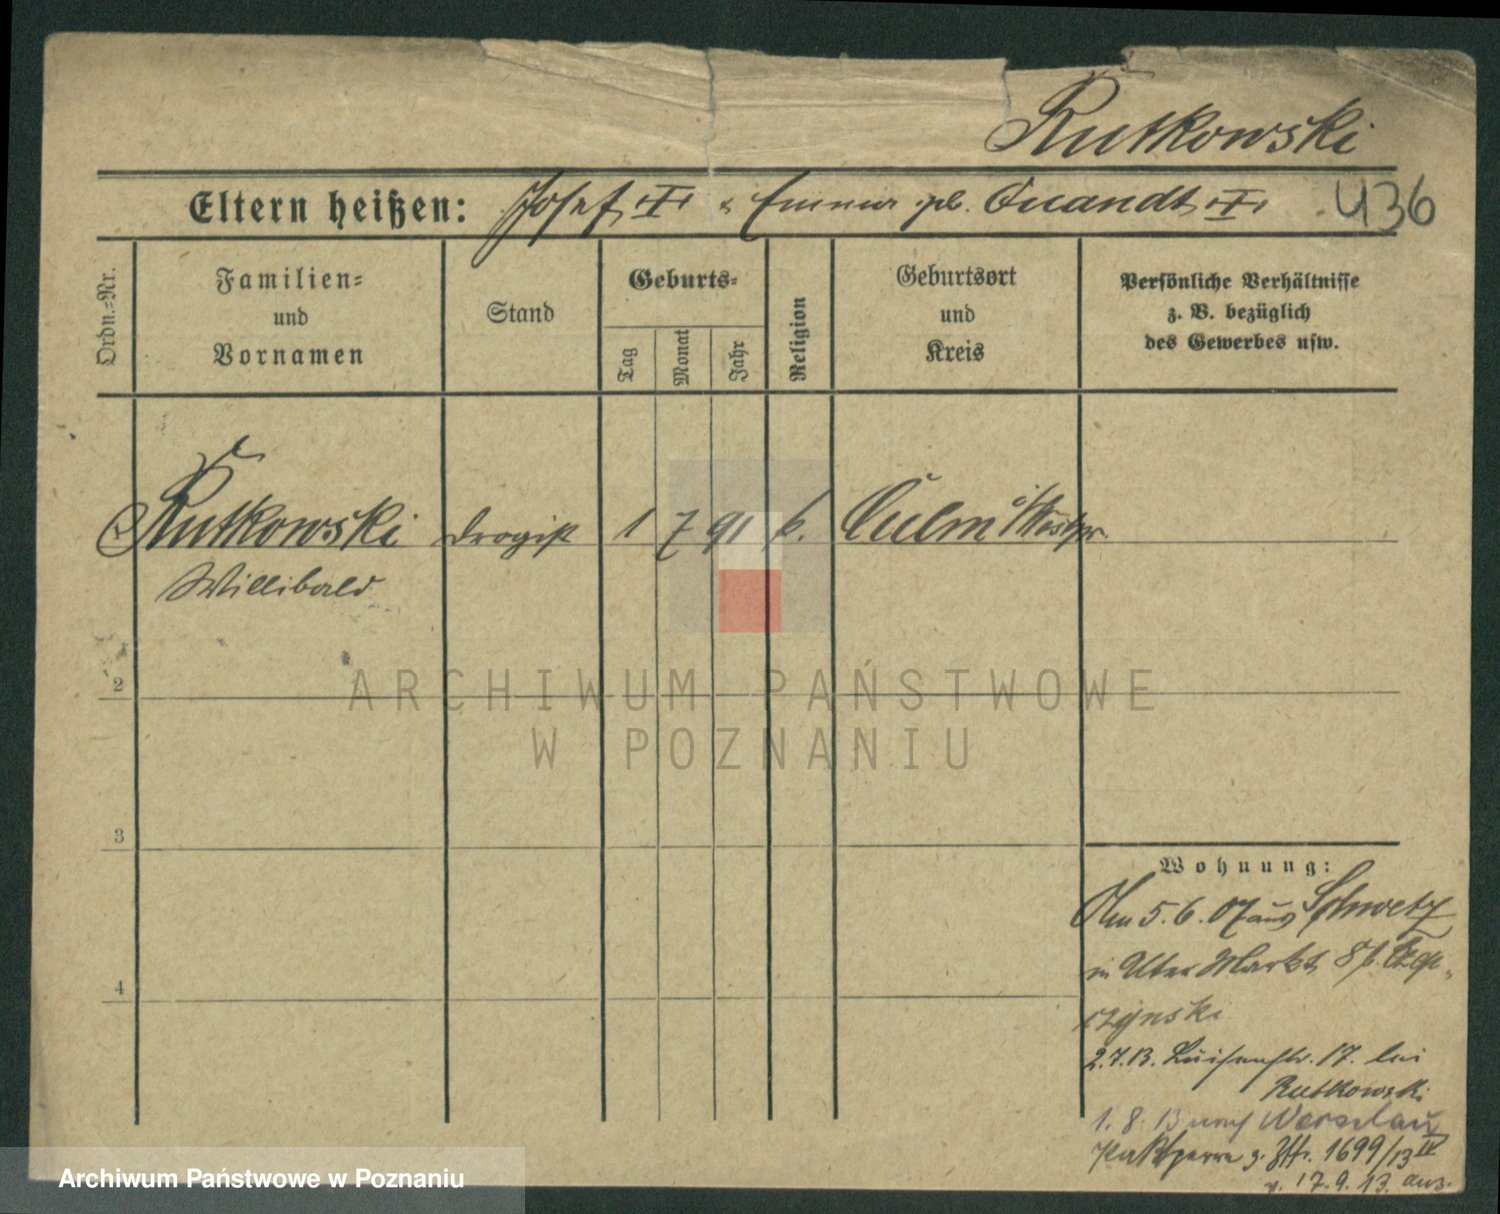 Rutkowski
Eltern heißen: Josef u. Emma geb. Quandt 436
Ordn.=Nr.
Familien=
und
Vornamen
Stand
Geburts=
Tag
Monat
Jahr
Religion
Geburtsort
und
Kreis
Persönliche Verhältnisse
z. B. bezüglich
des Gewerbes usw.
Rutkowski Drogist 1 7 91 k. Culm i/Westpr.
Willibald
2
3
4
Wohnung:
5.6.07 aus Schwetz
in Alter Markt 8 b.
czynski
2.7.13. Luisenstr. 17. bei
Rutkowski
1. 8. 13 nach
1699/13 IV
17.9.13.
ARCHIWUM PAŃSTWOWE
W POZNANIU
Archiwum Państwowe w Poznaniu